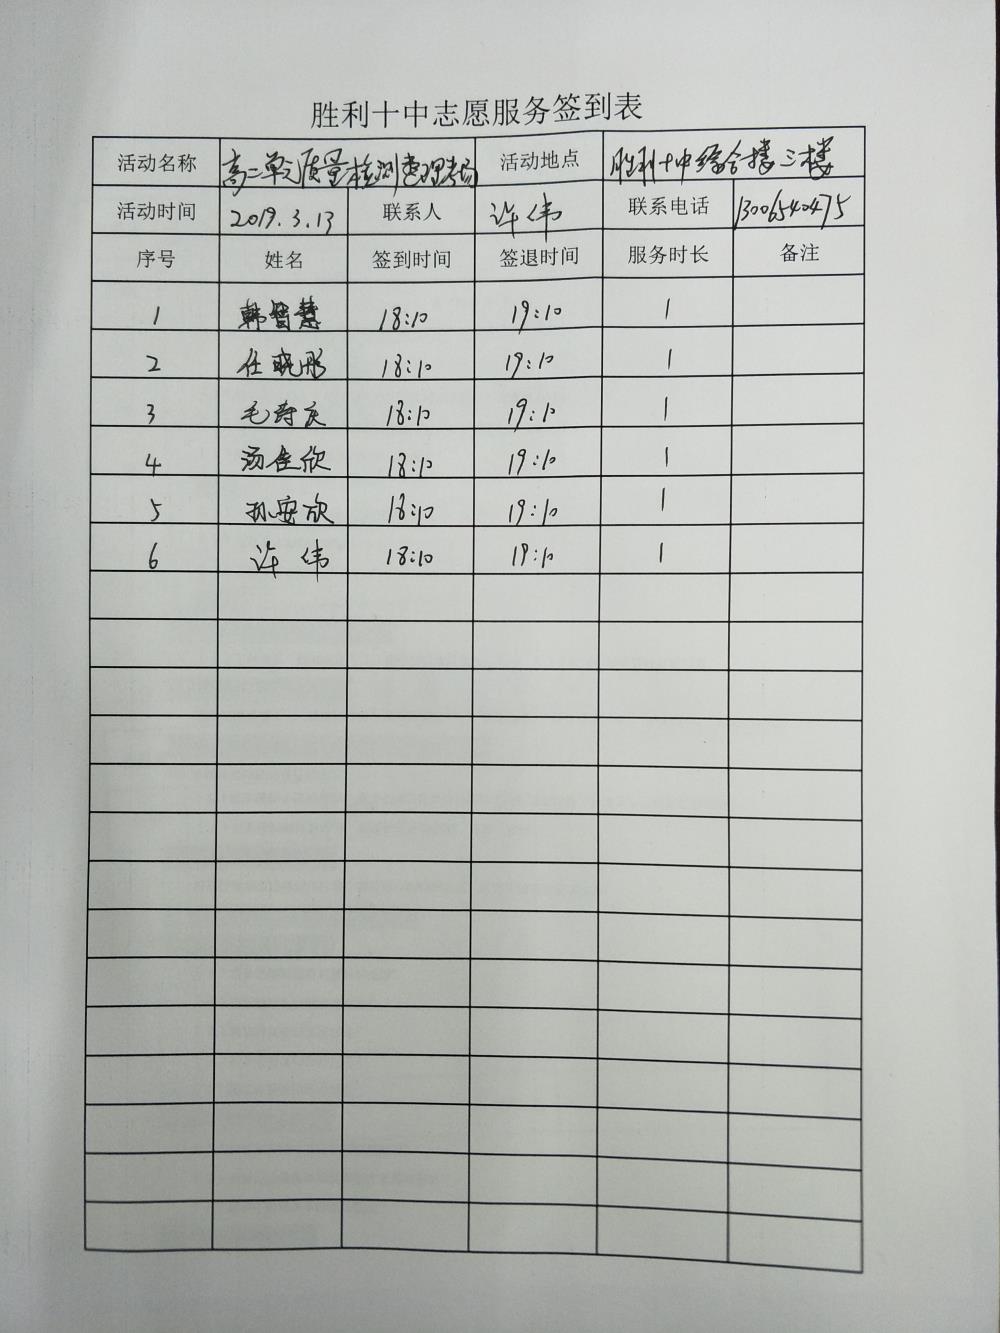 胜利十中志愿服务签到表
活动名称 高二单元质量检测整理考场 活动地点 胜利十中综合楼三楼
活动时间 2019.3.13 联系人 许伟 联系电话 13006540475
序号 姓名 签到时间 签退时间 服务时长 备注
1 韩智慧 18:10 19:10 1
2 任晓彤 18:10 19:10 1
3 毛诗庆 18:10 19:10 1
4 汤佳欣 18:10 19:10 1
5 孙安欣 18:10 19:10 1
6 许伟 18:10 19:10 1